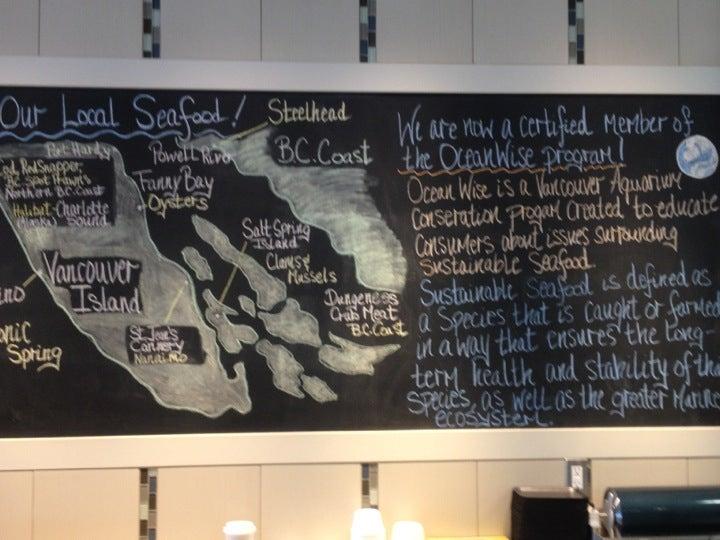 Our Local Seafood!
Steelhead
B.C. Coast
Port Hardy
Cod, Red Snapper,
Northern B.C. Coast
Halibut - Charlotte
(Alaska) Sound
Powell River
Fanny Bay
Oysters
Salt Spring
Island
Clams &
Mussels
Vancouver
Island
Dungeness
Crab Meat
B.C. Coast
St. Jean's
Cannery
Nanaimo
ino
onic
Spring
We are now a certified Member of
the OceanWise program!
Ocean Wise is a Vancouver Aquarium
Conseration progam Created to educate
Consumers about issues surrounding
Sustainable Seafood.
Sustainable Seafood is defined as
a Species that is caught or farmed
in a way that ensures the long-
term health and stability of tha
Species, as well as the greater Marine
ecosystem.